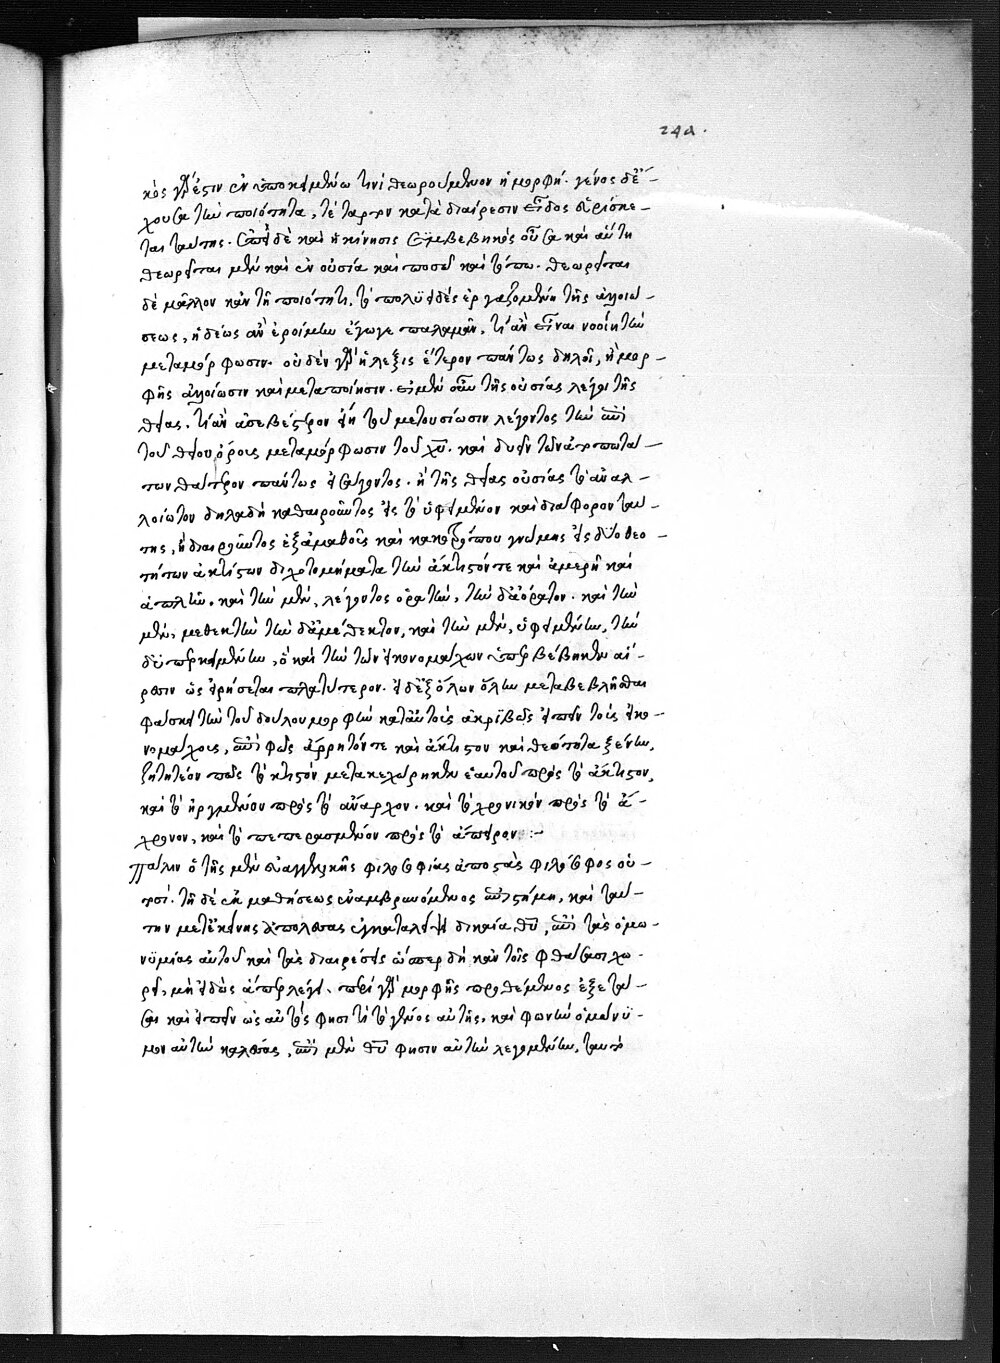 244.
κὸς γάρ ἐστιν ἐν ὑποκειμένω τινὶ θεωρούμενον ἡ μορφή. γένος δὲ ἔ-
χουσα τὴν ποιότητα, τέταρτον κατὰ διαίρεσιν εἶδος εὑρίσκε-
ται ταύτης. ἐπεὶ δὲ καὶ ἡ κίνησις συμβεβηκὸς οὖσα καὶ αὐτὴ
θεωρεῖται μὲν καὶ ἐν οὐσία καὶ ποσῶ καὶ τόπω. θεωρεῖται
δὲ μᾶλλον κἀν τῆ ποιότητι, τὸ πολυειδὲς ἐργαζομένη τῆς ἀλλοιώ-
σεως, ἡδέως ἂν ἐροίμην ἔγωγε παλαμᾶν, τί ἂν εἶναι νοοίη τὴν
μεταμόρφωσιν. οὐδὲν γὰρ ἡ λέξις ἕτερον πάντως δηλοῖ, ἢ μορ-
φῆς ἀλλοίωσιν καὶ μεταποίησιν. εἰ μὲν οὖν τῆς οὐσίας λέγοι τῆς
θείας. τί ἂν ἀσεβέστερον εἴη τοῦ μετουσίωσιν λέγοντος τὴν ἐπὶ
τοῦ θείου ὄρους μεταμόρφωσιν τοῦ χυ. καὶ δυεῖν τῶν ἀτοπωτά-
των θάτερον πάντως εἰσάγοντος. ἢ τῆς θείας οὐσίας τὸ ἀναλ-
λοίωτον δηλαδὴ καθαιροῦντος εἰς τὸ ὑφειμένον καὶ διάφορον ταύ-
της, ἢ διαιροῦντος ἐξ ἀμαθοῦς καὶ κακοτρόπου γνώμης εἰς δύο θεο-
τήτων ἀκτίστων διχοτομήματα τὴν ἄκτιστόν τε καὶ ἀμερῆ καὶ
ἁπλῆν. καὶ τὴν μὲν, λέγοντος ὁρατὴν, τὴν δ' ἀόρατον. καὶ τὴν
μὲν, μεθεκτὴν τὴν δ' ἀμέθεκτον, καὶ τὴν μὲν, ὑφειμένην, τὴν
δ' ὑπερκειμένην, ὃ καὶ τὴν τῶν εἰκονομάχων ὑπερβέβηκεν αἵ-
ρεσιν ὡς εἰρήσεται πλατύτερον. εἰ δ' ἐξ ὅλων ὅλην μεταβεβλῆσθαι
φάσκει τὴν τοῦ δούλου μορφὴν κατ' αὐτοὺς ἀκριβῶς εἰπεῖν τοὺς εἰκο-
νομάχους, ἐπὶ φῶς ἄρρητόν τε καὶ ἄκτιστον καὶ θεότητα ξένην,
ζητητέον πῶς τὸ κτιστὸν μετακεχώρηκεν ἑαυτοῦ πρὸς τὸ ἄκτιστον,
καὶ τὸ ἠργμένον πρὸς τὸ ἄναρχον. καὶ τὸ χρονικὸν πρὸς τὸ ἄ-
χρονον, καὶ τὸ πεπερασμένον πρὸς τὸ ἄπειρον :-
Πάλιν ὁ τῆς μὲν εὐαγγελικῆς φιλοσοφίας ἀποστὰς φιλόσοφος οὑ-
τοσί. τῆ δὲ ἐκ μαθήσεως ἐναμβρυνόμενος ἐπιστήμη, καὶ ταύ-
την μετ' ἐκείνης ἀπολέσας ἐγκαταλείψει δικαία θυ, ἐπὶ τὰς ὁμω-
νυμίας αὐτοῦ καὶ τὰς διαιρέσεις ὥσπερ δὴ κἀν τοῖς φθάσασι χω-
ρεῖ, μὴ εἰδὼς ἅπερ λέγει. περὶ γὰρ μορφῆς προθέμενος ἐξετά-
σαι καὶ εἰπεῖν ὡς αὐτός φησι τί τὸ γένος αὐτῆς. καὶ φωνὴν ὁμώνυ-
μον αὐτὴν καλέσας, ἐπὶ μὲν θυ φησὶν αὐτὴν λεγομένην, ταυτὸ